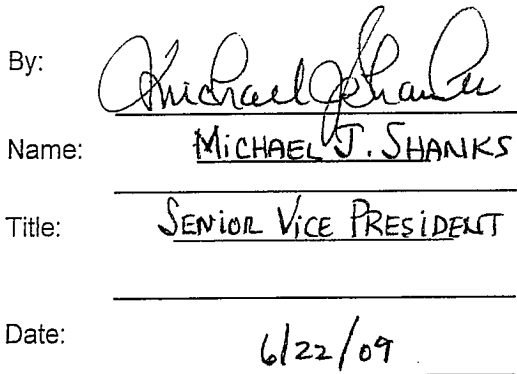 By: Michael J Shanks
Name: MICHAEL J. SHANKS
Title: SENIOR VICE PRESIDENT
Date: 6/22/09